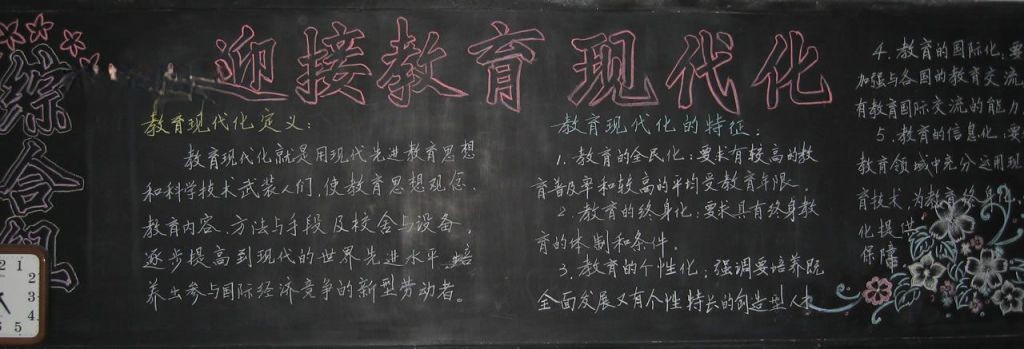 迎接教育现代化
综合组
教育现代化定义:
教育现代化就是用现代先进教育思想
和科学技术武装人们,使教育思想观念、
教育内容、方法与手段及校舍与设备,
逐步提高到现代的世界先进水平,培
养出参与国际经济竞争的新型劳动者。
教育现代化的特征:
1、教育的全民化:要求有较高的教
育普及率和较高的平均受教育年限。
2、教育的终身化:要求具有终身教
育的体制和条件。
3、教育的个性化:强调要培养既
全面发展又有个性特长的创造型人才
4、教育的国际化,要
加强与各国的教育交流
有教育国际交流的能力
5、教育的信息化:要
教育领域中充分运用现
育技术,为教育终身化
化提供
保障
2 1
2
3
4
5